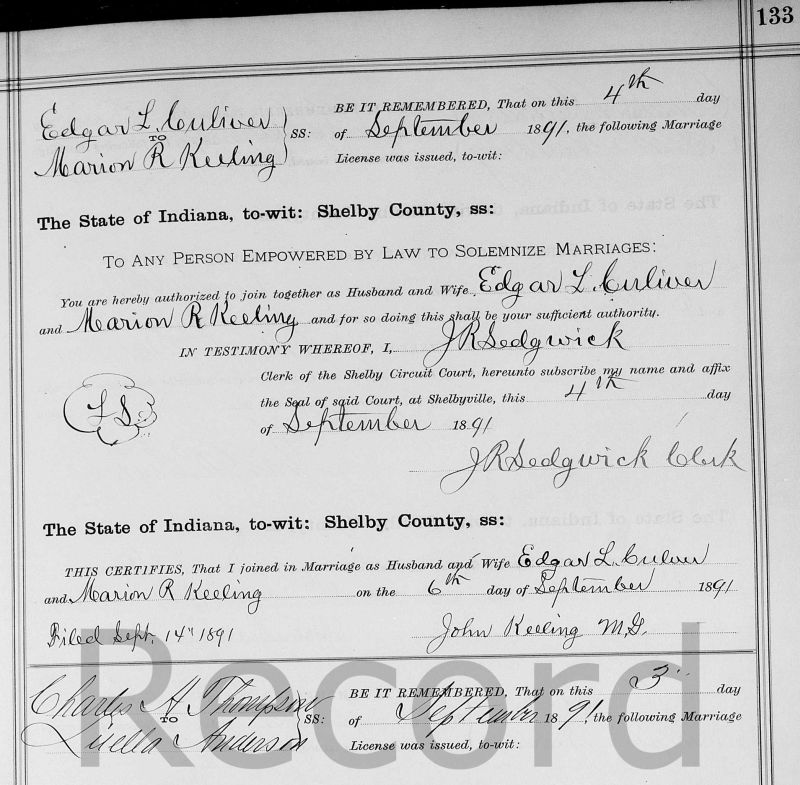 133
Edgar L. Culiver
TO
Marion R Keeling
SS:
BE IT REMEMBERED, That on this 4th day
of September 1891, the following Marriage
License was issued, to-wit:
The State of Indiana, to-wit: Shelby County, ss:
TO ANY PERSON EMPOWERED BY LAW TO SOLEMNIZE MARRIAGES:
You are hereby authorized to join together as Husband and Wife, Edgar L. Culiver
and Marion R Keeling and for so doing this shall be your sufficient authority.
IN TESTIMONY WHEREOF, I, J R Sedgwick
Clerk of the Shelby Circuit Court, hereunto subscribe my name and affix
LS
the Seal of said Court, at Shelbyville, this 4th day
of September 1891
J R Sedgwick Clerk
The State of Indiana, to-wit: Shelby County, ss:
THIS CERTIFIES, That I joined in Marriage as Husband and Wife Edgar L. Culver
and Marion R Keeling on the 6th day of September 1891
Filed Sept. 14" 1891 John Keeling M.G.
Record
Charles H Thompson
TO
Luella Anderson
SS:
BE IT REMEMBERED, That on this 3" day
of September 1891 the following Marriage
License was issued, to-wit: